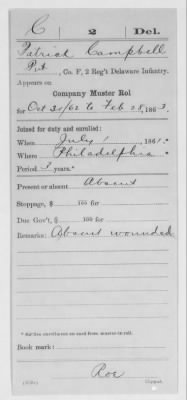 C 2 Del.
Patrick Campbell
Pvt, Co. F, 2 Reg't Delaware Infantry.
Appears on
Company Muster Roll
for Oct 31/62 to Feb 28, 1863.
Joined for duty and enrolled:
When July 1, 1861.*
Where Philadelphia *
Period 3 years.*
Present or absent Absent
Stoppage, $ 100 for
Due Gov't, $ 100 for
Remarks: Absent wounded
Book mark:
Roe
Copyist.